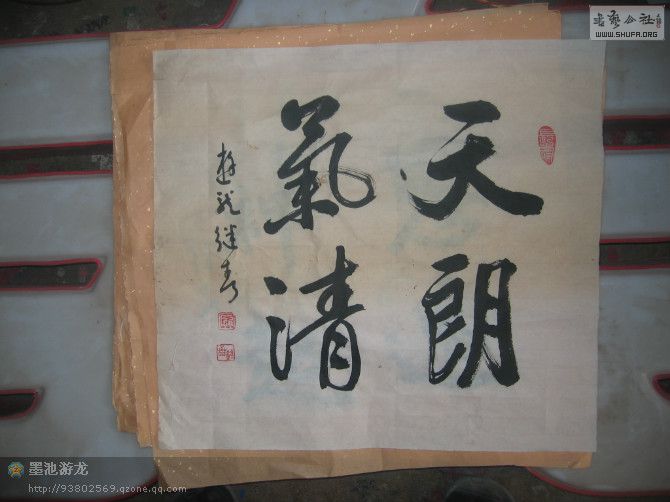 天朗
氣清
游龙继春
书艺公社
WWW.SHUFA.ORG
墨池游龙
http://93802569.qzone.qq.com